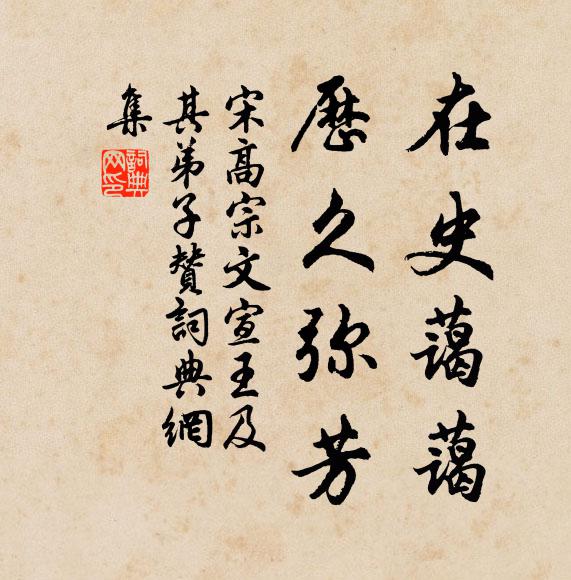 在史藹藹
歷久弥芳
宋高宗文宣王及
其弟子贊詞典網
集
詞典網印